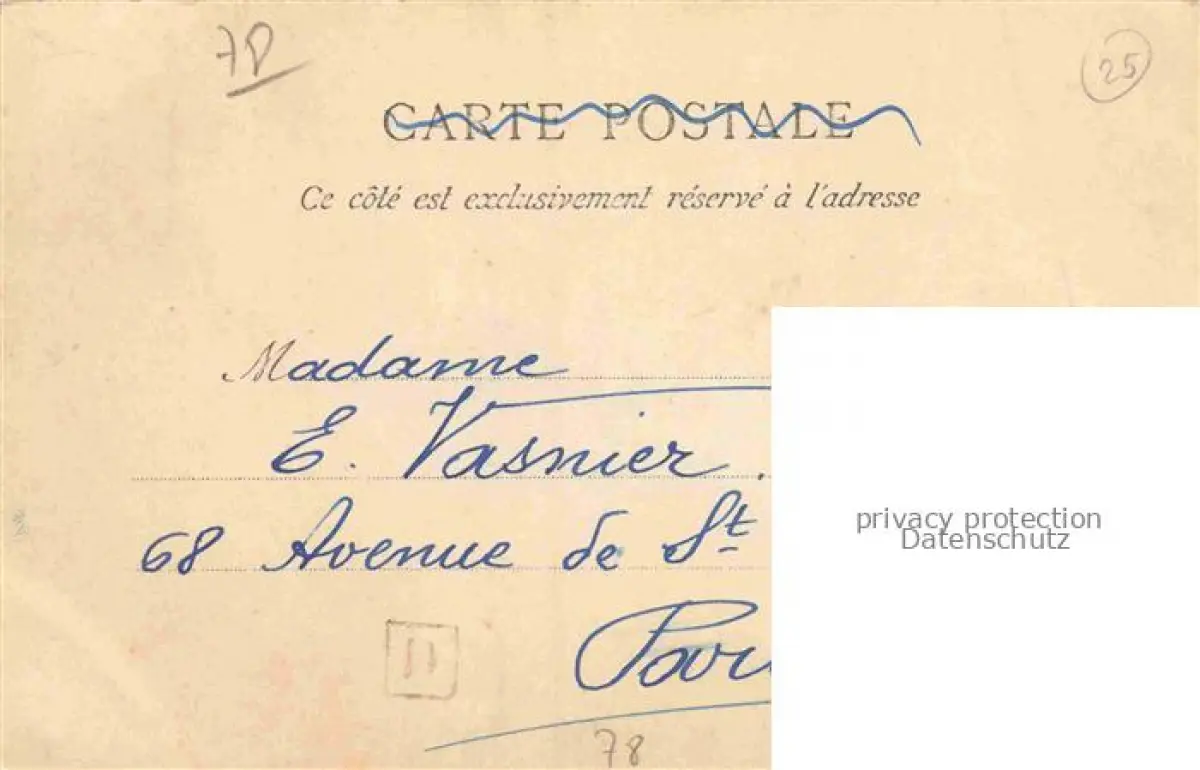 78
25
CARTE POSTALE
Ce côté est exclusivement réservé à l'adresse
Madame
E. Vasnier.
68 Avenue de St
privacy protection
Datenschutz
78